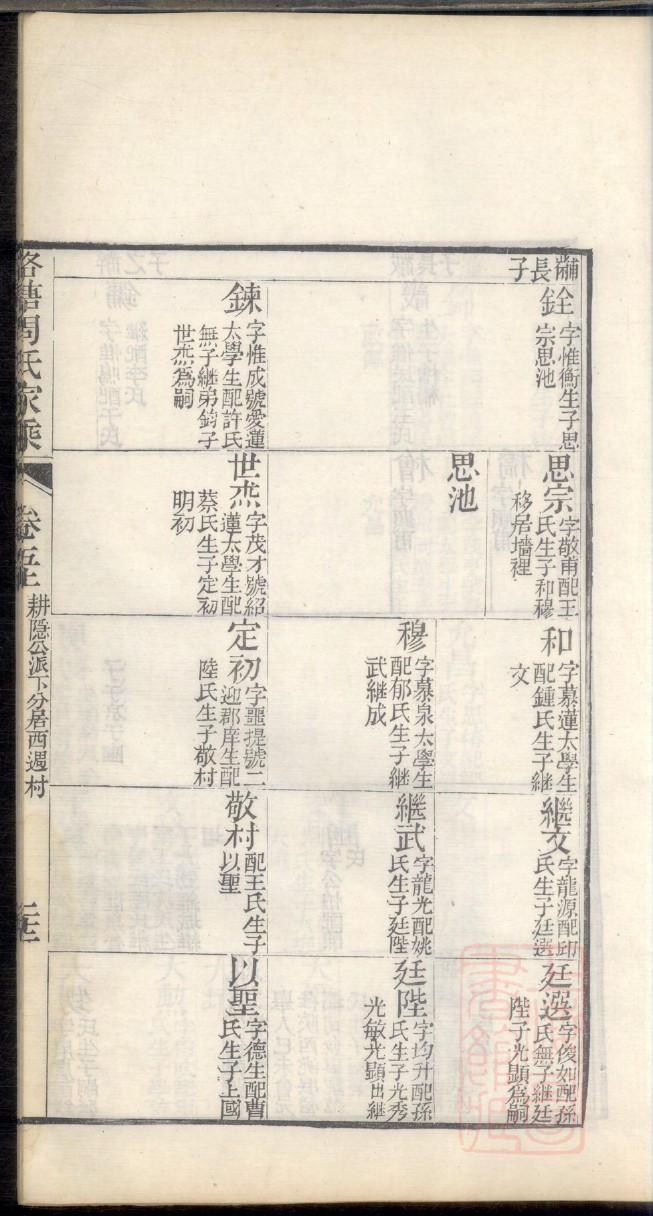 黼長子
銓
字惟衡生子思
宗思池
鍊
字惟成號愛蓮
太學生配許氏
無子繼弟鈞子
世杰爲嗣
思宗
字敬甫配王
氏生子和穆
移居墻裡
思池
世杰
字茂才號紹
蓮太學生配
蔡氏生子定初
明初
和
字慕蓮太學生
配鍾氏生子繼
文
穆
字慕泉太學生
配郁氏生子繼
武繼成
定初
字噩提號二
迎郡庠生配
陸氏生子敬村
繼文
字龍源配印
氏生子廷選
繼武
字龍光配姚
氏生子廷陛
敬村
配王氏生子
以聖
廷選
字俊如配孫
氏無子繼廷
陛子光顯爲嗣
廷陛
字均升配孫
氏生子光秀
光敏光顯出繼
以聖
字德生配曹
氏生子上國
洛塘周氏家乘
卷五上
耕隱公派下分居西週村